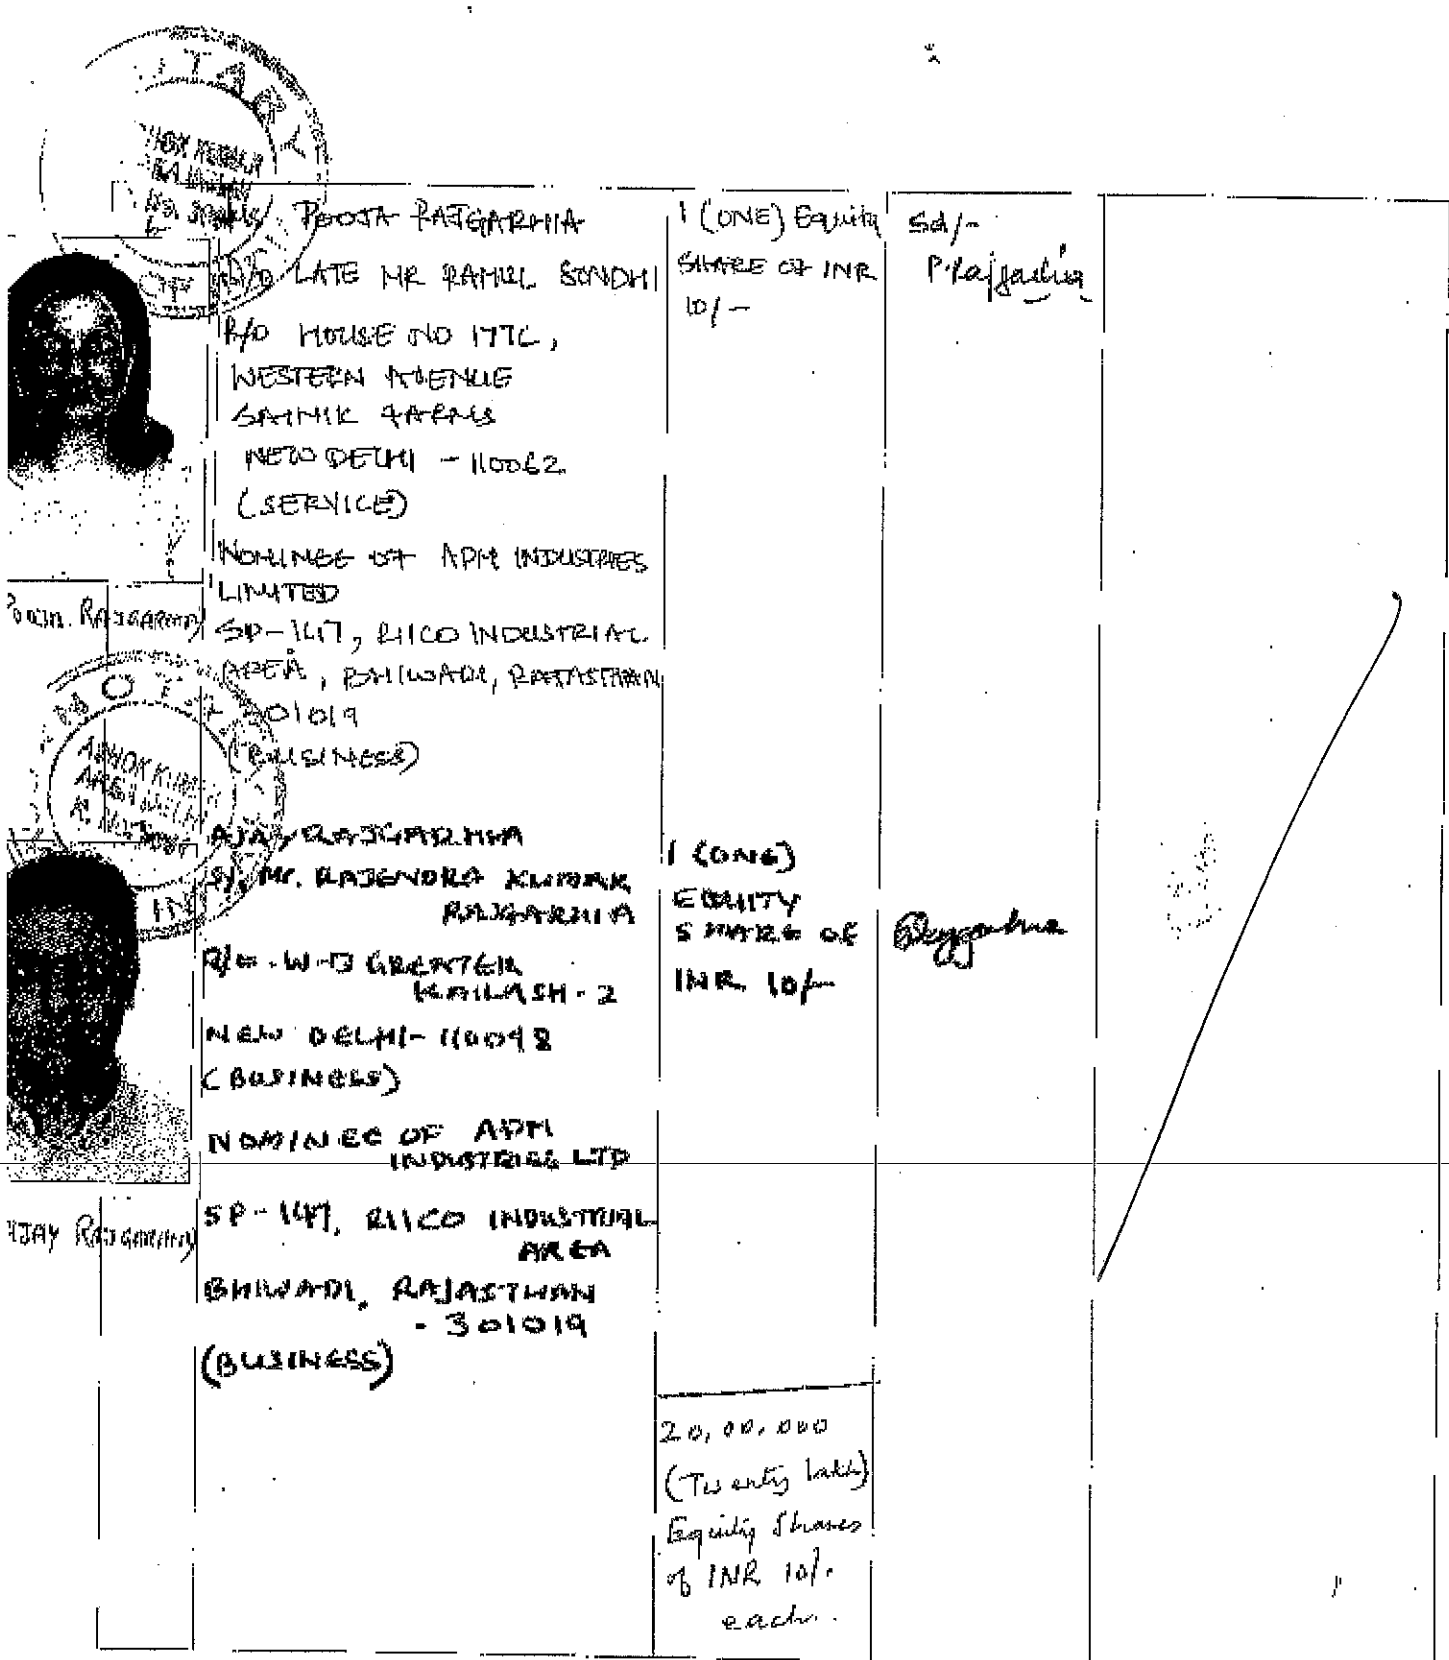 NOTARY
POOJA RAJGARHIA
D/O LATE MR RAHUL SONDHI
R/O HOUSE NO 177C,
WESTERN AVENUE
SAINIK FARMS
NEW DELHI - 110062
(SERVICE)
NOMINEE OF APM INDUSTRIES
LIMITED
SP-147, RIICO INDUSTRIAL
AREA, BHIWADI, RAJASTHAN
301019
(BUSINESS)
1 (ONE) Equity
SHARE OF INR
10/-
Sd/-
P. Rajgarhia
POOJA RAJGARHIA
NOTARY
ASHOK KUMAR
AJAY RAJGARHIA
S/o Mr. RAJENDRA KUMAR
RAJGARHIA
R/O - GREATER
KAILASH - 2
NEW DELHI - 110048
(BUSINESS)
NOMINEE OF APM
INDUSTRIES LTD
SP-147, RIICO INDUSTRIAL
AREA
BHIWADI, RAJASTHAN
- 301019
(BUSINESS)
1 (ONE)
EQUITY
SHARE OF
INR 10/-
AJAY RAJGARHIA
20,00,000
(Twenty lakh)
Equity Shares
of INR 10/-
each.